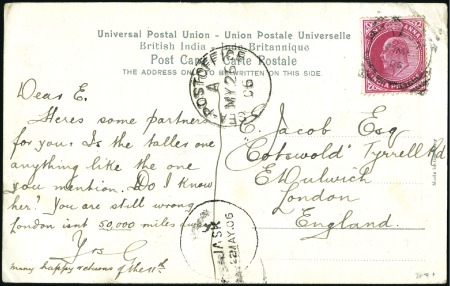 Universal Postal Union - Union Postale Universelle
British India - Inde Britannique
Post Card - Carte Postale
THE ADDRESS ONLY TO BE WRITTEN ON THIS SIDE.
POST OFFICE
A
MY 26
06
ANNA
Dear E.
Heres some partners
for you. Is the talles one
anything like the one
you mention. Do I know
her? You are still wrong
London isnt 50,000 miles away
Yrs C
many happy returns of the 11th
E. Jacob Esq
"Cotswold" Tyrrell Rd
E. Dulwich
London
England.
JASK
22 MAY.06